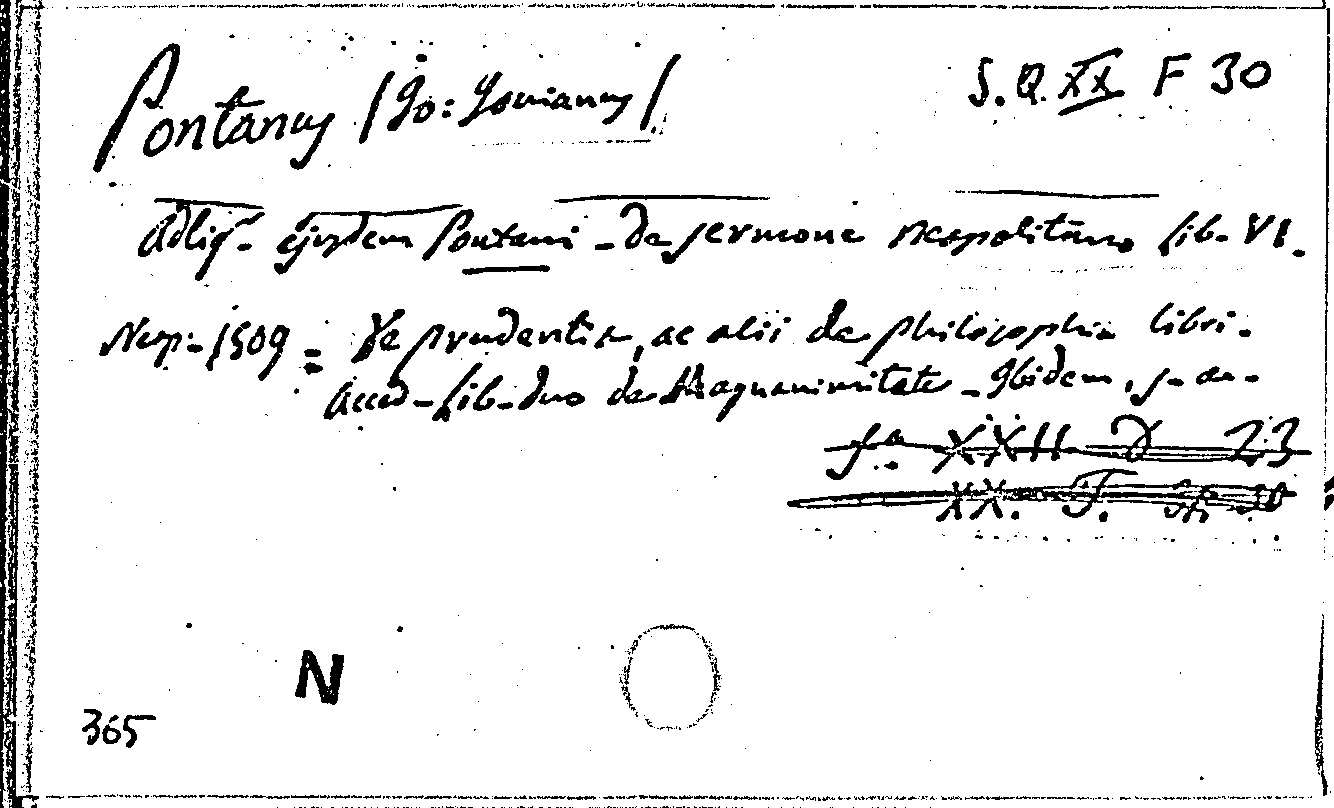 Pontanus /Jo: Jovianus/ S.Q. XX F 30
Adlig. ejusdem Pontani - de sermone neapolitano lib. VI.
Neap. 1509 = De prudentia, ac alii de philosophia libri.
Acced. lib. duo de Magnanimitate - Ibidem, s. an.
XXII D 23
XX. F.
N
365